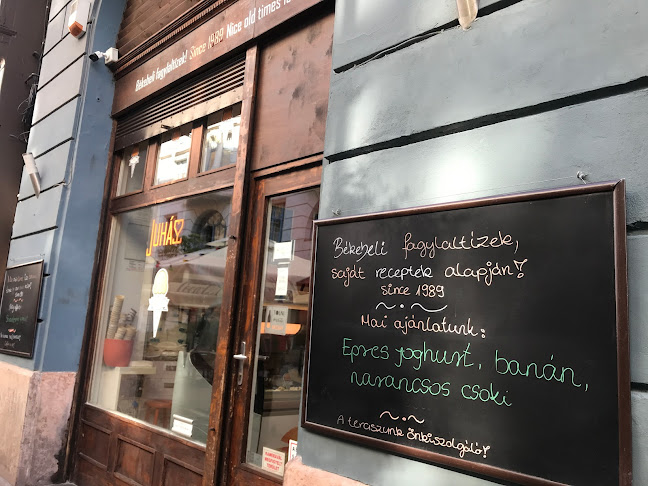 Békebeli fagylaltízek! Since 1989 Nice old times
JUHÁSZ
Békebeli fagylaltízek,
saját receptek alapján!
since 1989
Mai ajánlatunk:
Epres joghurt, banán,
narancsos csoki
A teraszunk önkiszolgáló!